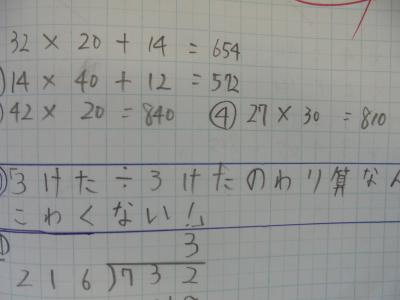 32 × 20 + 14 = 654
)14 × 40 + 12 = 572
)42 × 20 = 840 ④ 27 × 30 = 810
「3けた÷3けたのわり算なん
こわくない!」
3
216)732